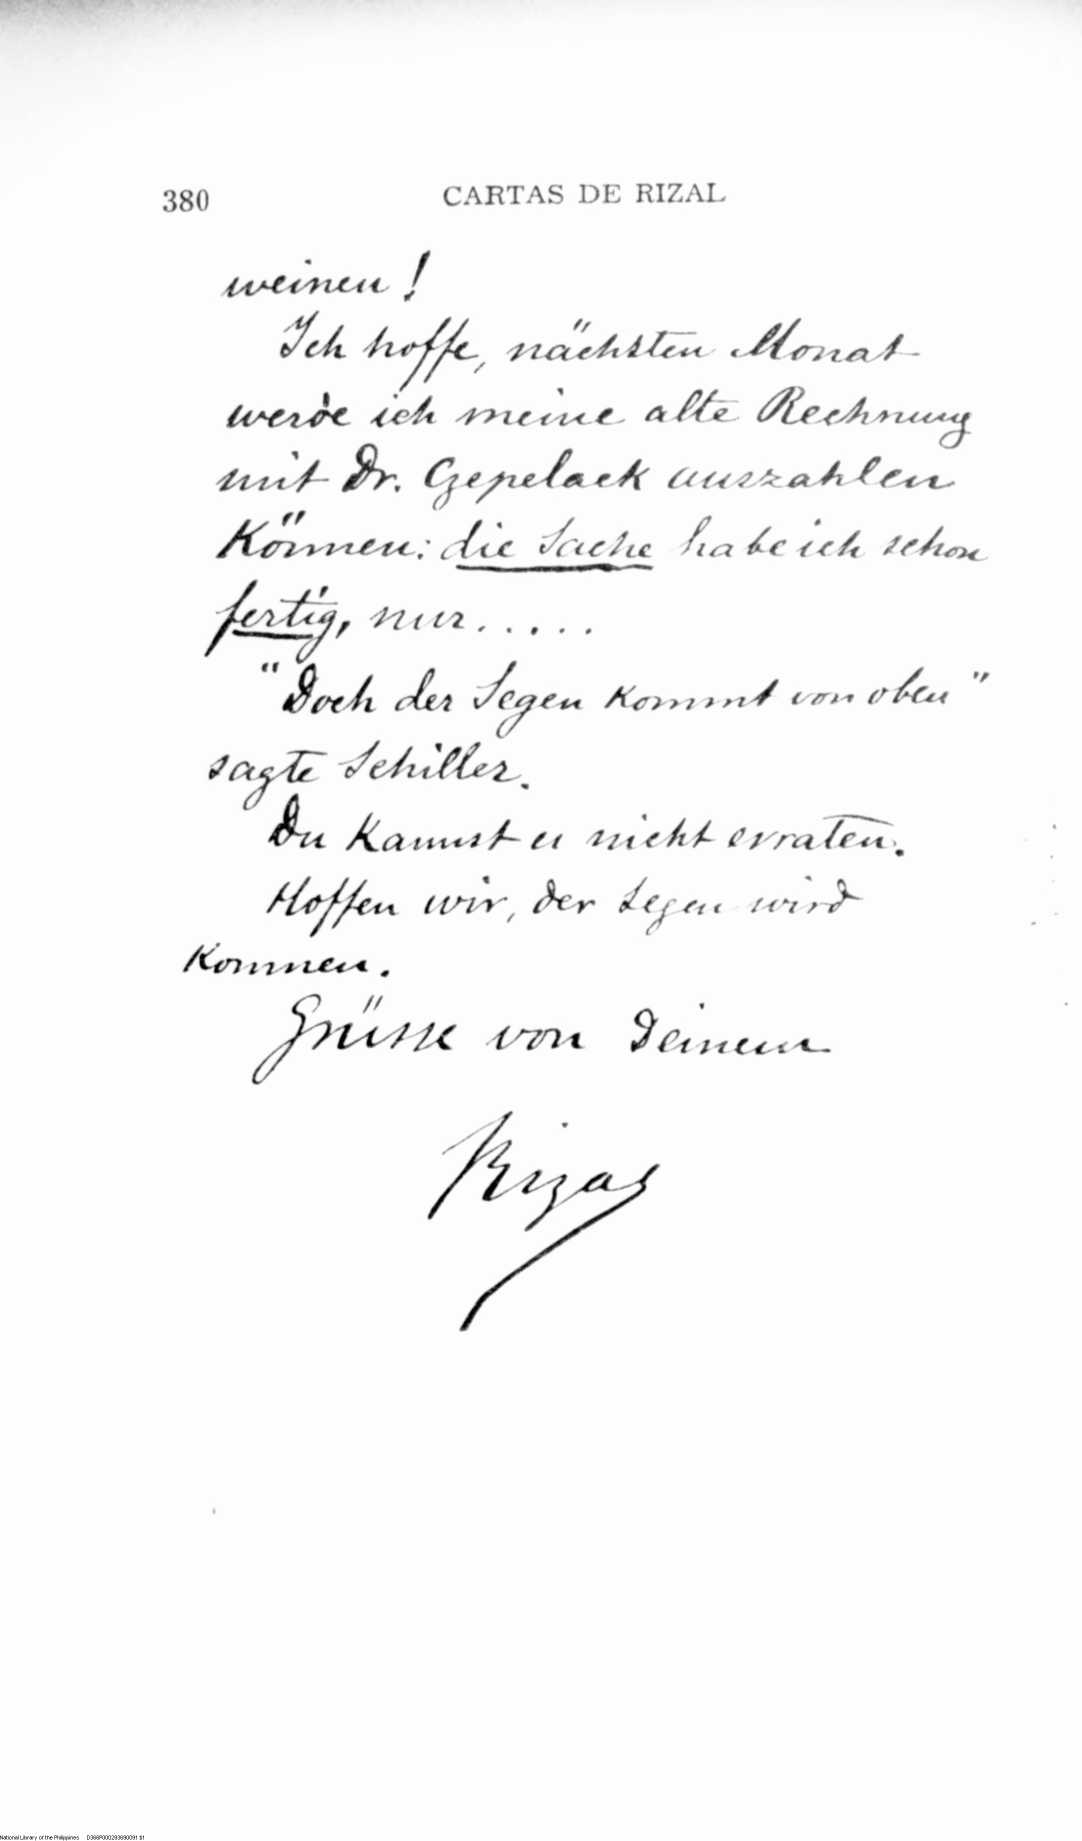 380 CARTAS DE RIZAL
weinen!
Ich hoffe, nächsten Monat
werde ich meine alte Rechnung
mit Dr. Czepelack auszahlen
Können: die Sache habe ich schon
fertig, nur.....
"Doch der Segen kommt von oben"
sagte Schiller.
Du Kannst es nicht erraten.
Hoffen wir, der Segen wird
Kommen.
Grüsse von Deinem
Rizal
National Library of the Philippines